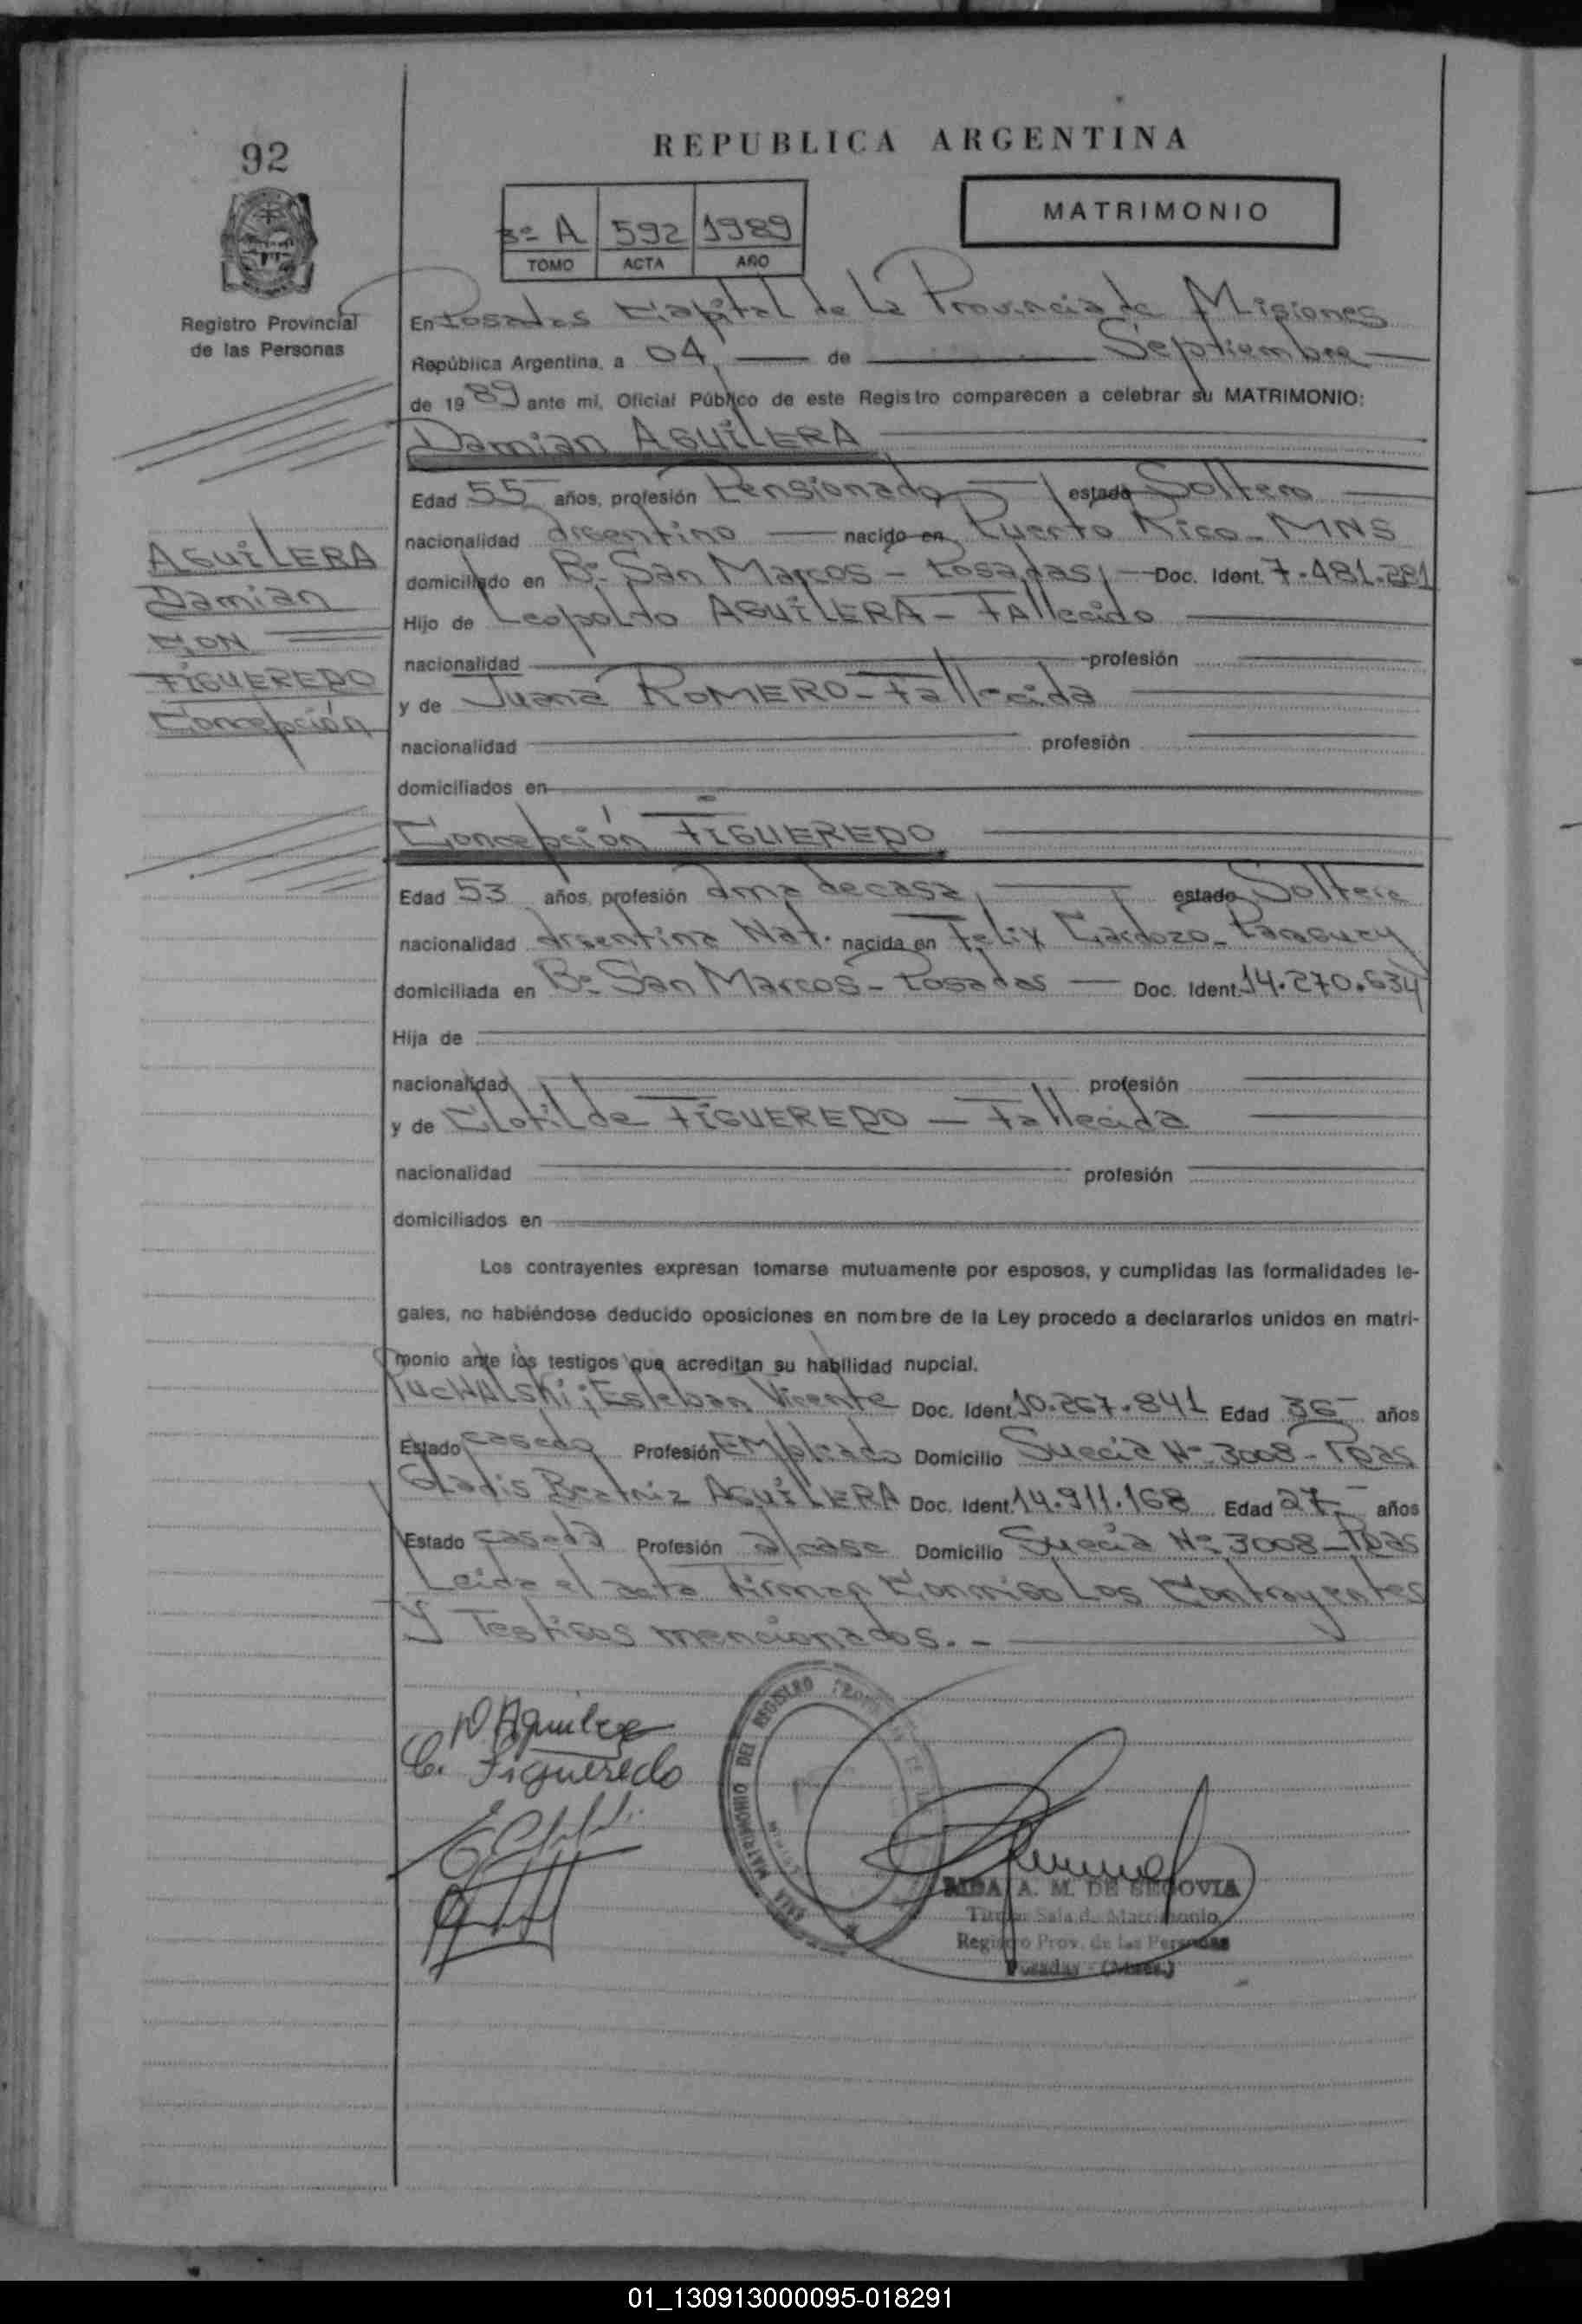 92
REPUBLICA ARGENTINA
3º A 592 1989
TOMO ACTA AÑO
MATRIMONIO
Registro Provincial
de las Personas
En Posadas Capital de La Provincia de Misiones
República Argentina, a 04 de Septiembre
de 1989 ante mí, Oficial Público de este Registro comparecen a celebrar su MATRIMONIO:
Damian AGUILERA
Edad 55 años, profesión Pensionado estado Soltero
nacionalidad Argentino nacido en Puerto Rico - MNS
domiciliado en Bº San Marcos - Posadas Doc. Ident. 7.481.281
Hijo de Leopoldo AGUILERA - Fallecido
nacionalidad profesión
y de Juana ROMERO - Fallecida
nacionalidad profesión
domiciliados en
AGUILERA
Damian
CON
FIGUEREDO
Concepción
Concepción FIGUEREDO
Edad 53 años, profesión Ama de casa estado Soltera
nacionalidad Argentina Nat. nacida en Felix Cardozo - Paraguay
domiciliada en Bº San Marcos - Posadas Doc. Ident. 14.270.634
Hija de
nacionalidad profesión
y de Clotilde FIGUEREDO - Fallecida
nacionalidad profesión
domiciliados en
Los contrayentes expresan tomarse mutuamente por esposos, y cumplidas las formalidades le-
gales, no habiéndose deducido oposiciones en nombre de la Ley procedo a declararlos unidos en matri-
monio ante los testigos que acreditan su habilidad nupcial.
PUCHALSKI; Esteban Vicente Doc. Ident. 10.267.841 Edad 36 años
Estado casado Profesión Empleado Domicilio Suecia Nº 3008 - Pdas
Gladis Beatriz AGUILERA Doc. Ident. 14.911.168 Edad 27 años
Estado casada Profesión a/casa Domicilio Suecia Nº 3008 - Pdas
Leida el acta Firman Conmigo Los Contrayentes
Y Testigos mencionados. -
D. Aguilera
C. Figueredo
SALA MATRIMONIO DEL REGISTRO
A. M. DE SEGOVIA
Titular Sala de Matrimonio
Registro Prov. de las Personas
Posadas - (Mnes.)
01_130913000095-018291